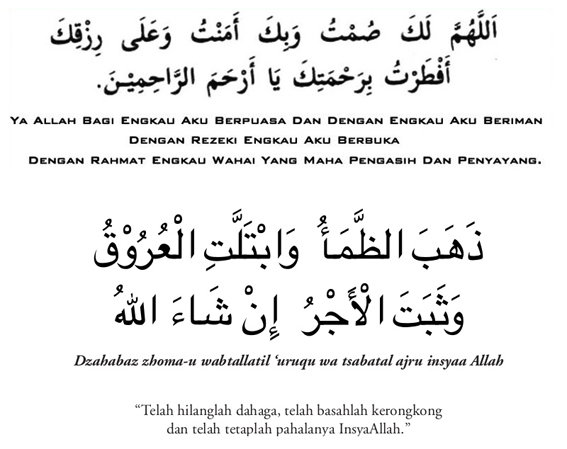 اَللَّهُمَّ لَكَ صُمْتُ وَبِكَ أَمَنْتُ وَعَلَى رِزْقِكَ
أَفْطَرْتُ بِرَحْمَتِكَ يَا أَرْحَمَ الرَّاحِمِيْنَ.
YA ALLAH BAGI ENGKAU AKU BERPUASA DAN DENGAN ENGKAU AKU BERIMAN
DENGAN REZEKI ENGKAU AKU BERBUKA
DENGAN RAHMAT ENGKAU WAHAI YANG MAHA PENGASIH DAN PENYAYANG.
ذَهَبَ الظَّمَأُ وَابْتَلَّتِ الْعُرُوْقُ
وَثَبَتَ الْأَجْرُ إِنْ شَاءَ اللهُ
Dzahabaz zhoma-u wabtallatil ‘uruqu wa tsabatal ajru insyaa Allah
“Telah hilanglah dahaga, telah basahlah kerongkong
dan telah tetaplah pahalanya InsyaAllah.”